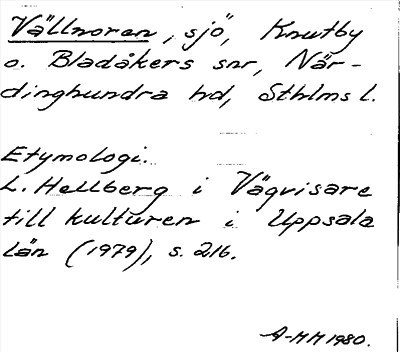 Vällnoren, sjö, Knutby
o. Bladåkers snr, När-
dinghundra hd, Sthlms l.
Etymologi.
L. Hellberg i Vägvisare
till kulturen i Uppsala
län (1979), s. 216.
A-HH 1980.